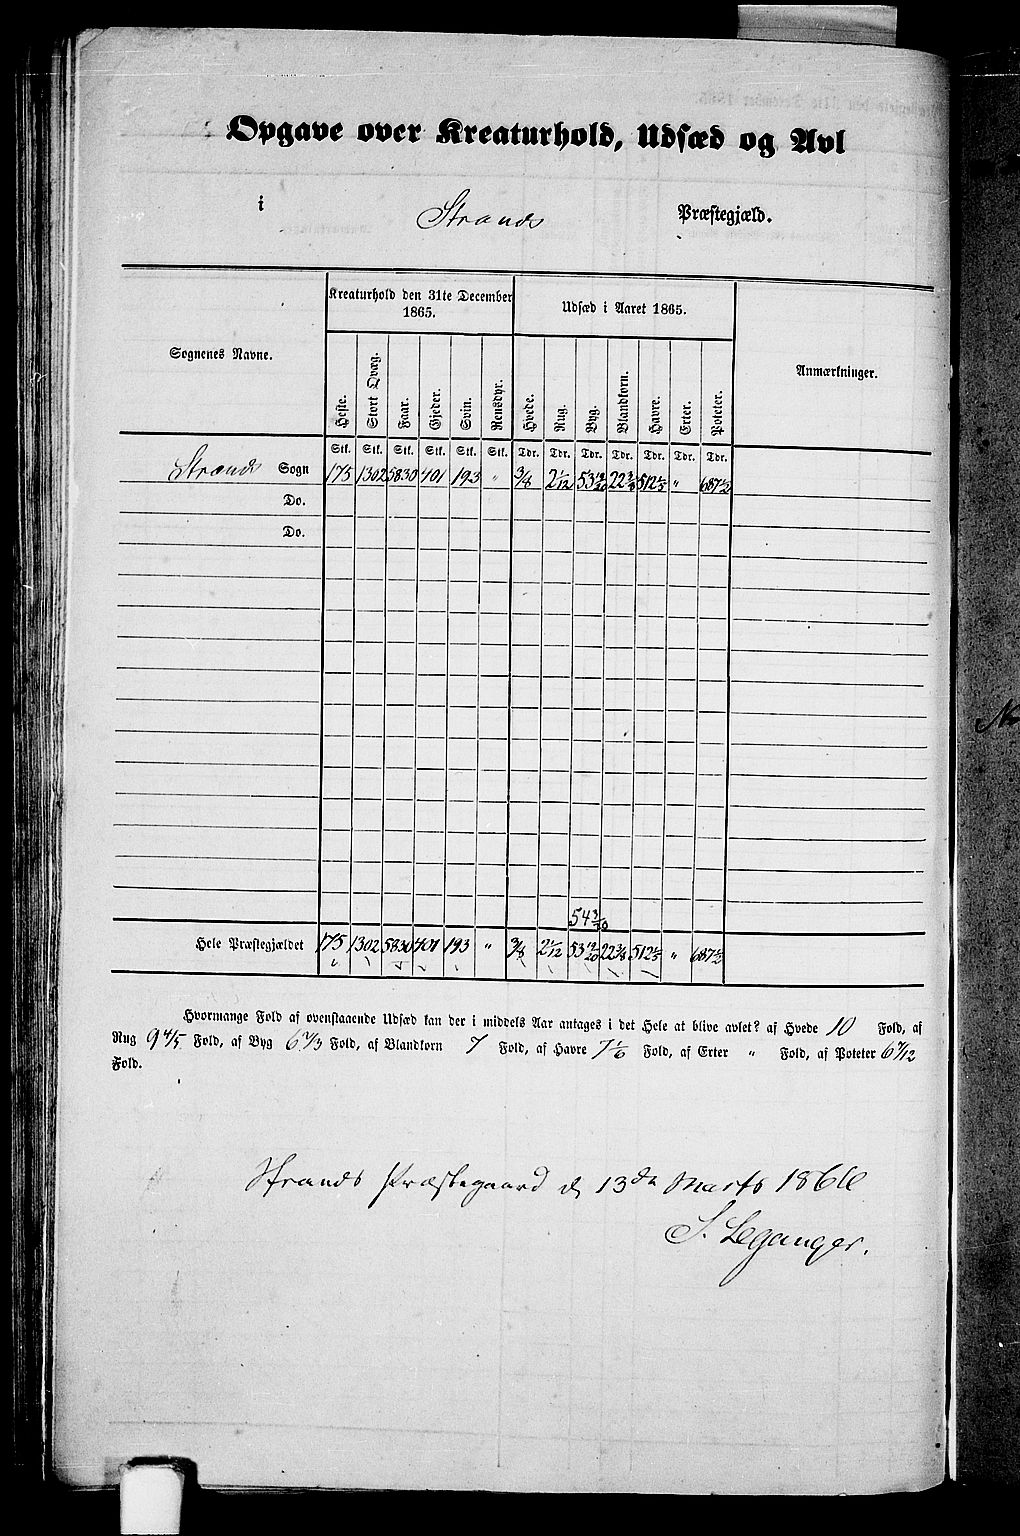 Opgave over Kreaturhold, Udsæd og Avl
i Strands Præstegjæld.
Sognenes Navne. Kreaturhold den 31te December 1865. Udsæd i Aaret 1865. Anmærkninger.
Heste. Stort Qvæg. Faar. Gjeder. Svin. Rensdyr. Hvede. Rug. Byg. Blandkorn. Havre. Erter. Poteter.
Stk. Stk. Stk. Stk. Stk. Stk. Tdr. Tdr. Tdr. Tdr. Tdr. Tdr. Tdr.
Strands Sogn 175 1302 5830 401 193 " 3/8 2 1/12 22 3/8 " 687 1/2
Do.
Do.
54 3/10
Hele Præstegjældet 175 1302 5830 401 193 " 3/8 2 1/12 22 3/8 " 687 1/2
Hvormange Fold af ovenstaaende Udsæd kan der i middels Aar antages i det Hele at blive avlet? af Hvede 10 Fold, af
Rug 9 4/5 Fold, af Byg Fold, af Blandkorn 7 Fold, af Havre 7 1/6 Fold, af Erter " Fold, af Poteter 6 7/12
Fold.
Strands Præstegaard d 13de Marts 1866
S. Leganger.